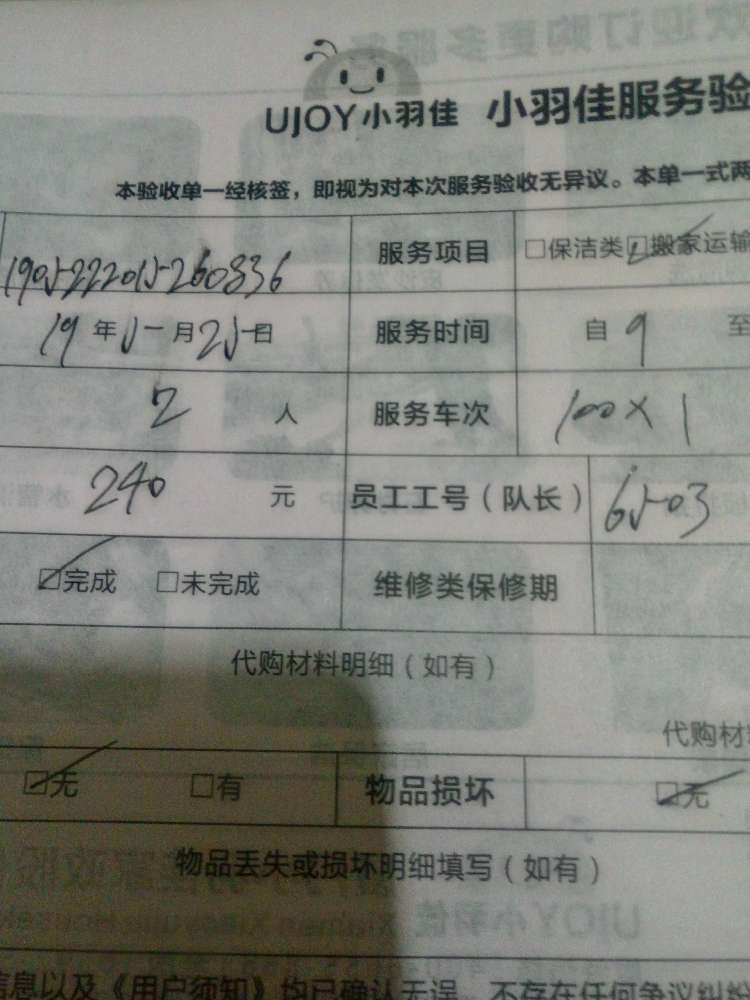 UJOY小羽佳 小羽佳服务验
本验收单一经核签，即视为对本次服务验收无异议。本单一式两
1905222015260836 服务项目 □保洁类 ☑搬家运输
19年5月25日 服务时间 自 9 至
2 人 服务车次 100×1
240 元 员工工号（队长） 6503
☑完成 □未完成 维修类保修期
代购材料明细（如有）
代购材
☑无 □有 物品损坏 ☑无
物品丢失或损坏明细填写（如有）
UJOY小羽佳 Xiamen Xiaoyujia
信息以及《用户须知》均已确认无误，不存在任何争议纠纷